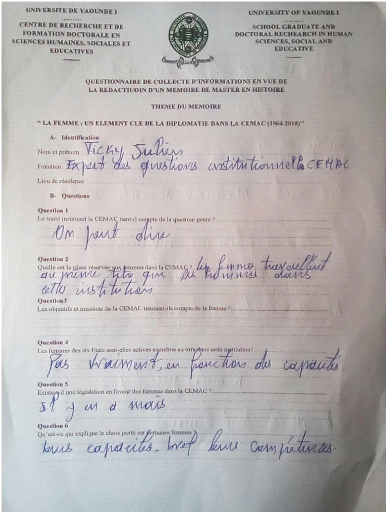 UNIVERSITE DE YAOUNDE I
CENTRE DE RECHERCHE ET DE
FORMATION DOCTORALE EN
SCIENCES HUMAINES, SOCIALES ET
EDUCATIVES
UNIVERSITY OF YAOUNDE I
SCHOOL GRADUATE AND
DOCTORAL RECHEARCH IN HUMAN
SCIENCES, SOCIAL AND
EDUCATIVE
QUESTIONNAIRE DE COLLECTE D'INFORMATIONS EN VUE DE
LA REDACTIUOIN D'UN MEMOIRE DE MASTER EN HISTOIRE
THEME DU MEMOIRE
" LA FEMME : UN ELEMENT CLE DE LA DIPLOMATIE DANS LA CEMAC (1964-2018)"
A- Identification
Nom et prénom Ticky Julien
Fonction Expert des questions institutionnelles CEMAC
Lieu de résidence
B- Questions
Question 1
Le traité instituant la CEMAC tient-il compte de la question genre ?
On peut dire
Question 2
Quelle est la place réservée aux femmes dans la CEMAC ? les femmes travaillent
au même titre que les hommes dans
cette institution
Question3
Les objectifs et missions de la CEMAC tiennent-ils compte de la femme ?
Question 4
Les femmes des six Etats sont-elles actives au même au titre dans cette institution?
Pas vraiment, en fonction des capacités.
Question 5
Existe-t-il une législation en faveur des femmes dans la CEMAC ?
y en a mais
Question 6
Qu'est-ce qui explique le choix porté sur certaines femmes ?
leurs capacités. bref leurs compétences.